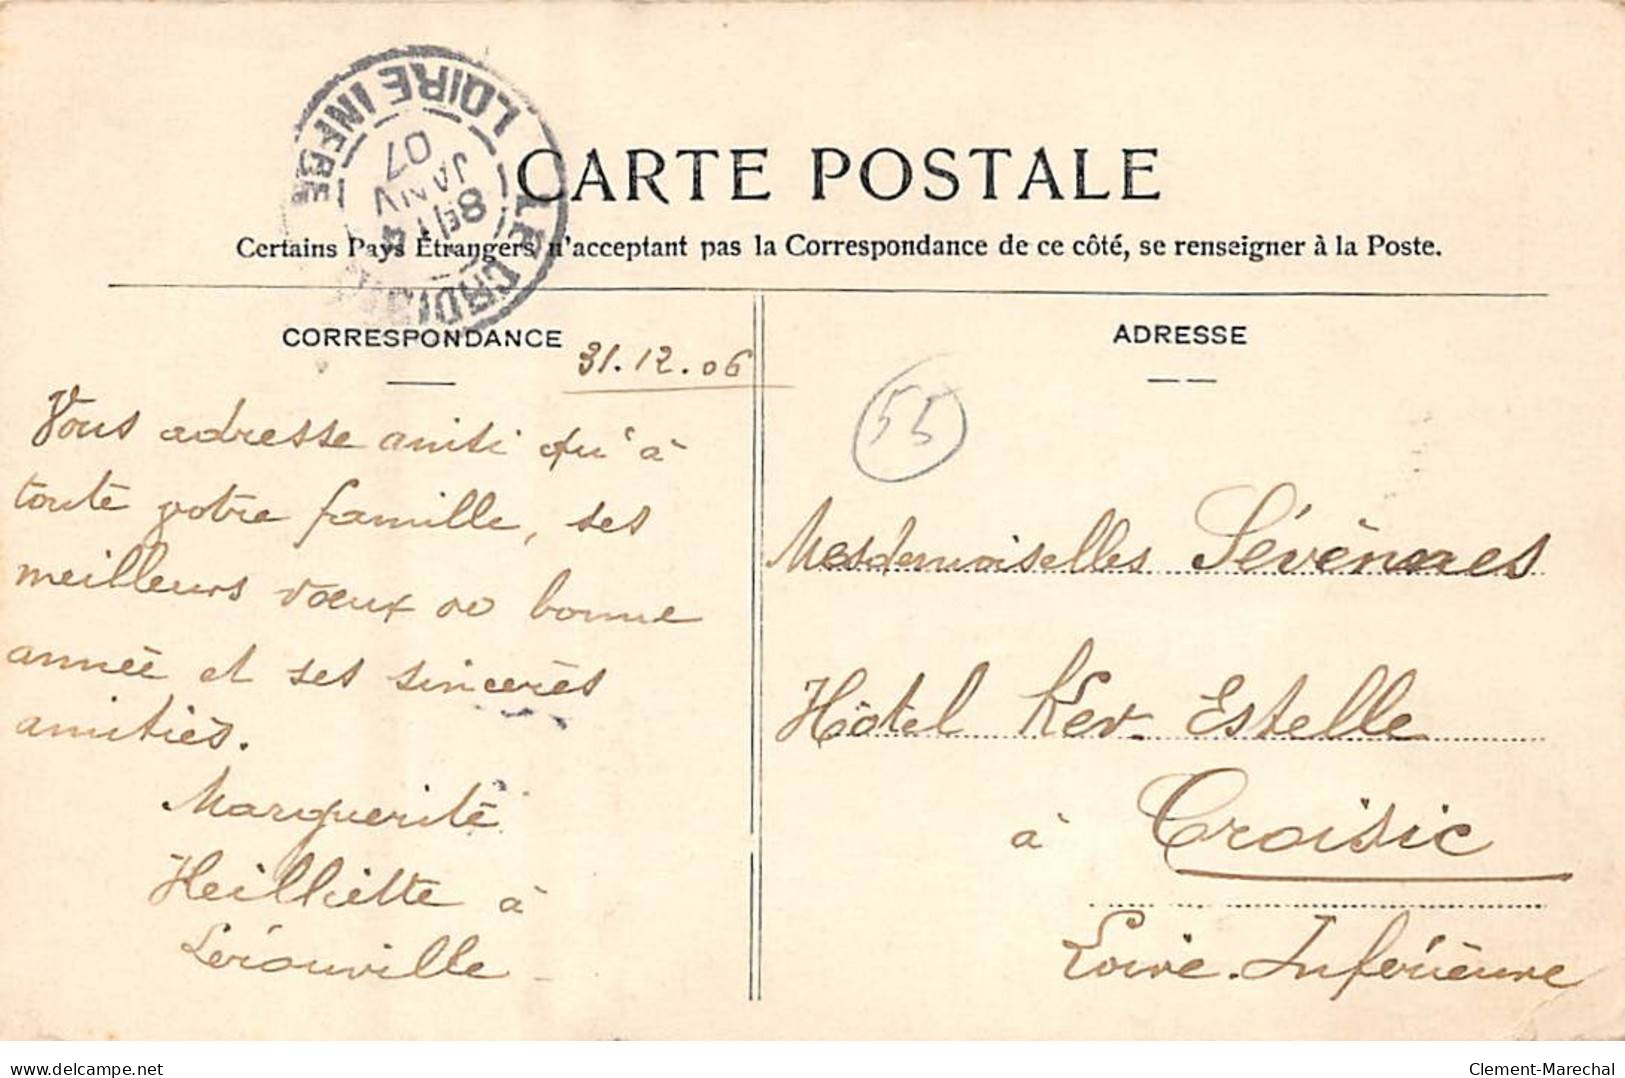 CARTE POSTALE
Certains Pays Étrangers n'acceptant pas la Correspondance de ce côté, se renseigner à la Poste.
LE CROISIC LOIRE INFRE
8 JANV 07
CORRESPONDANCE
31.12.06
Vous adresse qu'à
toute votre famille, ses
meilleurs vœux de bonne
année et ses sincères
amitiés.
Marguerite
à
Lérouville
ADRESSE
55
Mesdemoiselles
Hôtel Ker Estelle
à Croisic
Loire-Inférieure
delcampe.net
Clement-Marechal